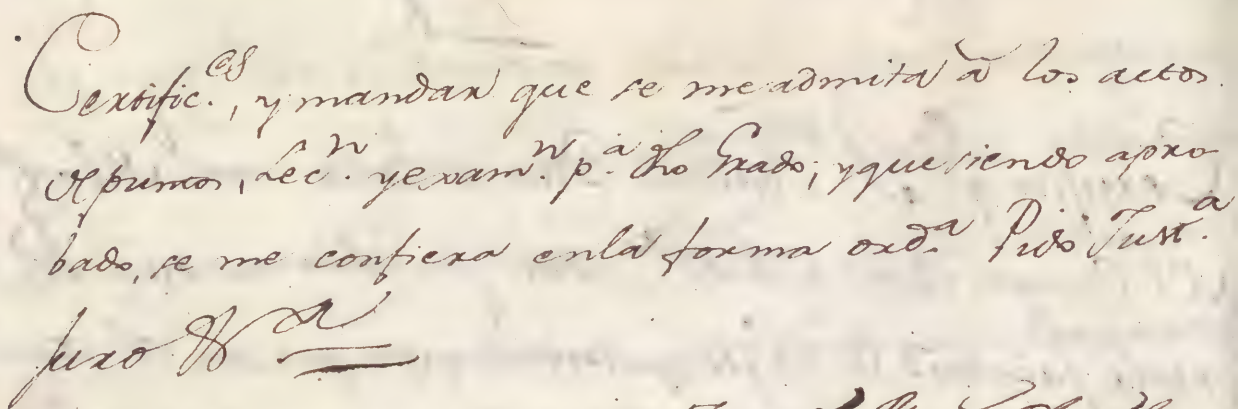 Certific.es, y mandar que se me admita â los actos
de puntos, Lec.n y exam.n p.a dho Grado; y que siendo apro
bado, se me confiera en la forma ord.a Pido Just.a
Juro &.a